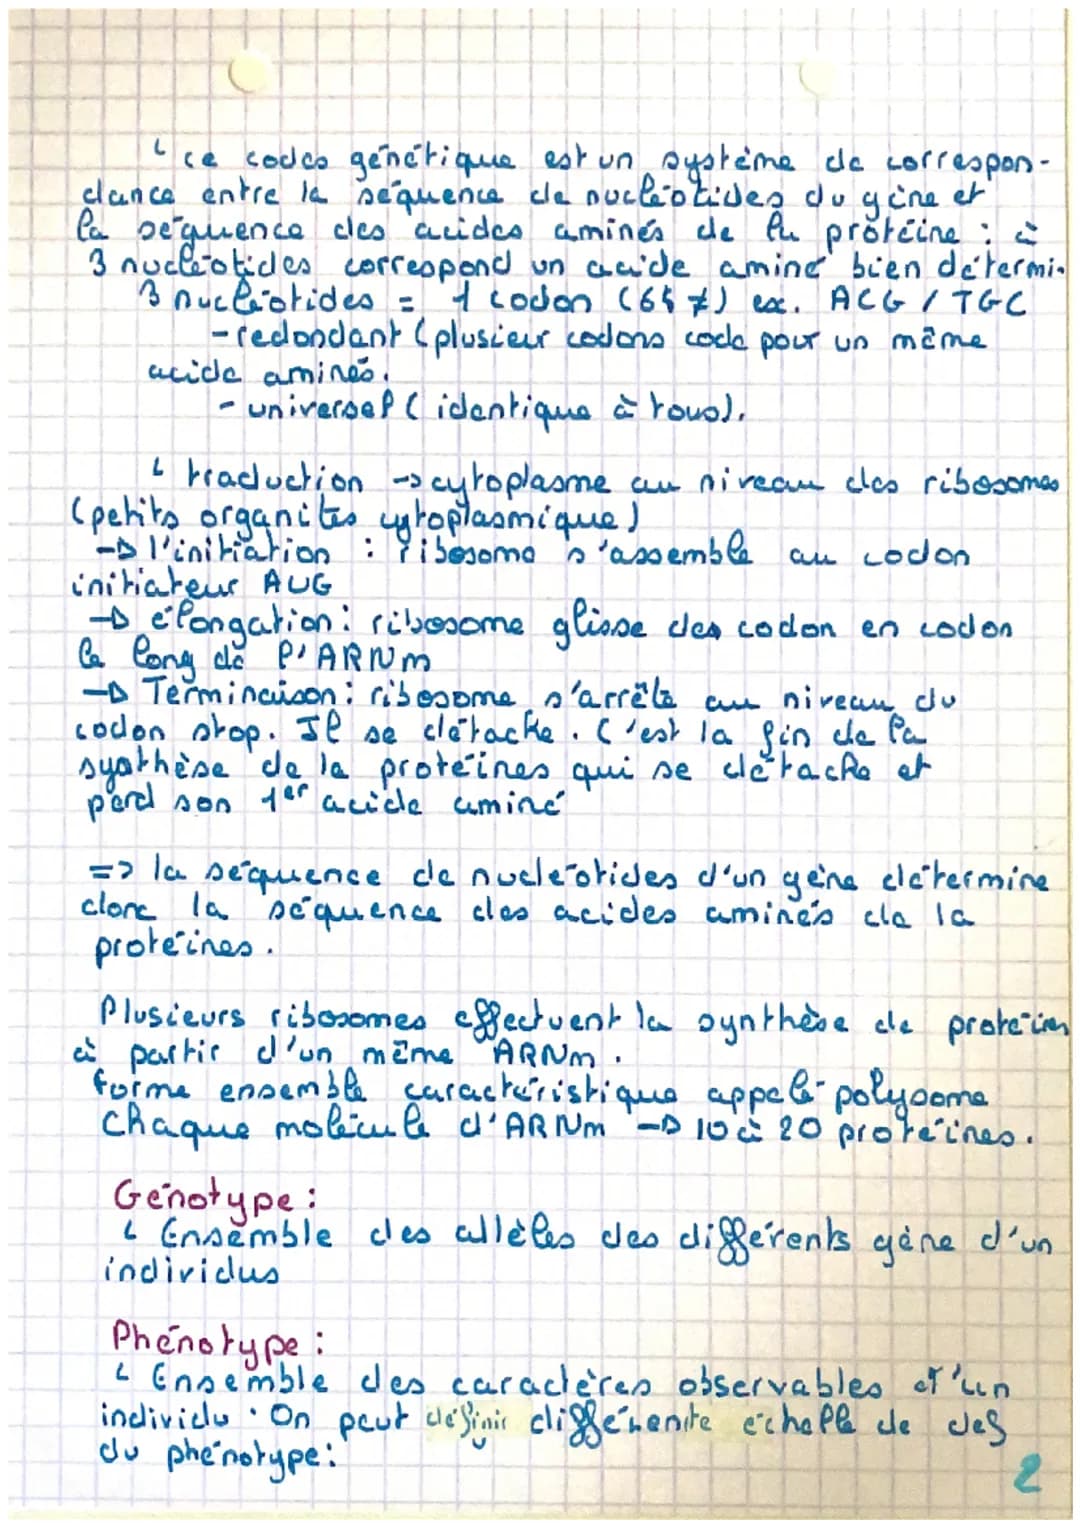 ↳ ce codes génétique est un système de correspon-
dance entre la séquence de nucléotides du gène et
la séquence des acides aminés de la protéine : à
3 nucléotides correspond un acide aminé bien détermi.
3 nucléotides = 1 codon (64 ≠) ex. ACG / TGC
- redondant (plusieur codons code pour un même
acide aminés.
- universel (identique à tous).
↳ traduction → cytoplasme au niveau des ribosomes
(petits organites cytoplasmique)
→ l'initiation : ribosome s'assemble au codon
initiateur AUG
→ élongation : ribosome glisse des codon en codon
le long de l'ARNm
→ Terminaison : ribosome s'arrête au niveau du
codon stop. Il se détache. C'est la fin de la
synthèse de la protéines qui se détache et
perd son 1er acide aminé
=> la séquence de nucléotides d'un gène détermine
donc la séquence des acides aminés de la
protéines.
Plusieurs ribosomes effectuent la synthèse de protéines
à partir d'un même ARNm.
forme ensemble caractéristique appelé polysome
Chaque molécule d'ARNm → 10 à 20 protéines.
Génotype :
↳ Ensemble des allèles des différents gène d'un
individus
Phénotype :
↳ Ensemble des caractères observables d'un
individu. On peut définir différente échelle de des
du phénotype :
2